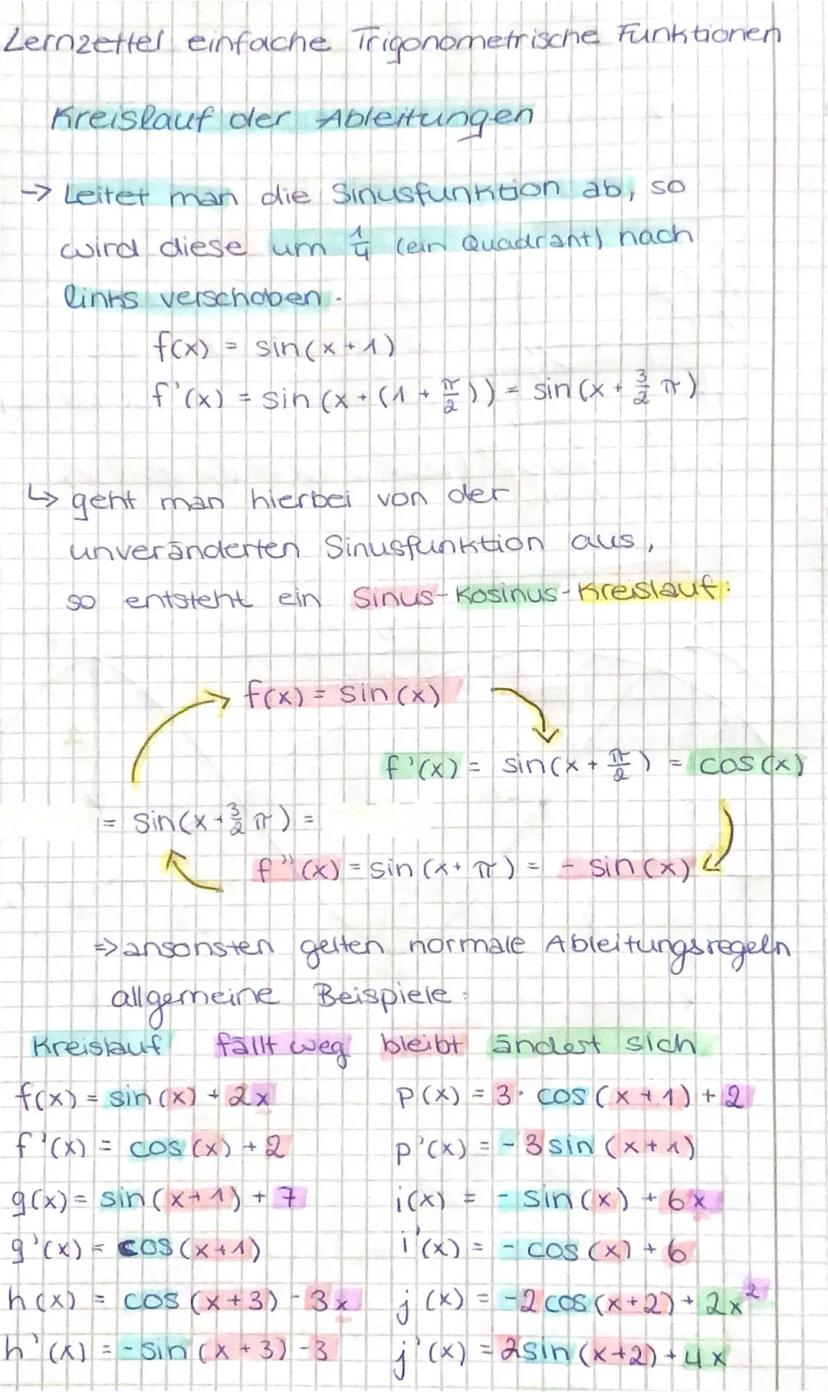 Lernzettel einfache Trigonometrische Funktionen
Kreislauf der Ableitungen
→ Leitet man die Sinusfunktion ab, so
wird diese um 1/4 (ein Quadrant) nach
links verschoben.
f(x) = sin(x+1)
f'(x) = sin(x+(1+π/2)) = sin(x+3/2 π)
↳ geht man hierbei von der
unveränderten Sinusfunktion aus,
so entsteht ein Sinus-Kosinus-Kreislauf:
f(x) = sin(x)
f'(x) = sin(x+π/2) = cos(x)
= sin(x+3/2 π) =
f''(x) = sin(x+π) = - sin(x)
⇒ ansonsten gelten normale Ableitungsregeln
allgemeine Beispiele:
Kreislauf fällt weg bleibt ändert sich
f(x) = sin(x) + 2x p(x) = 3· cos(x+1) + 2
f'(x) = cos(x) + 2 p'(x) = - 3sin(x+1)
g(x) = sin(x+1) + 7 i(x) = - sin(x) + 6x
g'(x) = cos(x+1) i'(x) = - cos(x) + 6
h(x) = cos(x+3) - 3x j(x) = -2cos(x+2) + 2x²
h'(x) = -sin(x+3) - 3 j'(x) = 2sin(x+2) + 4x